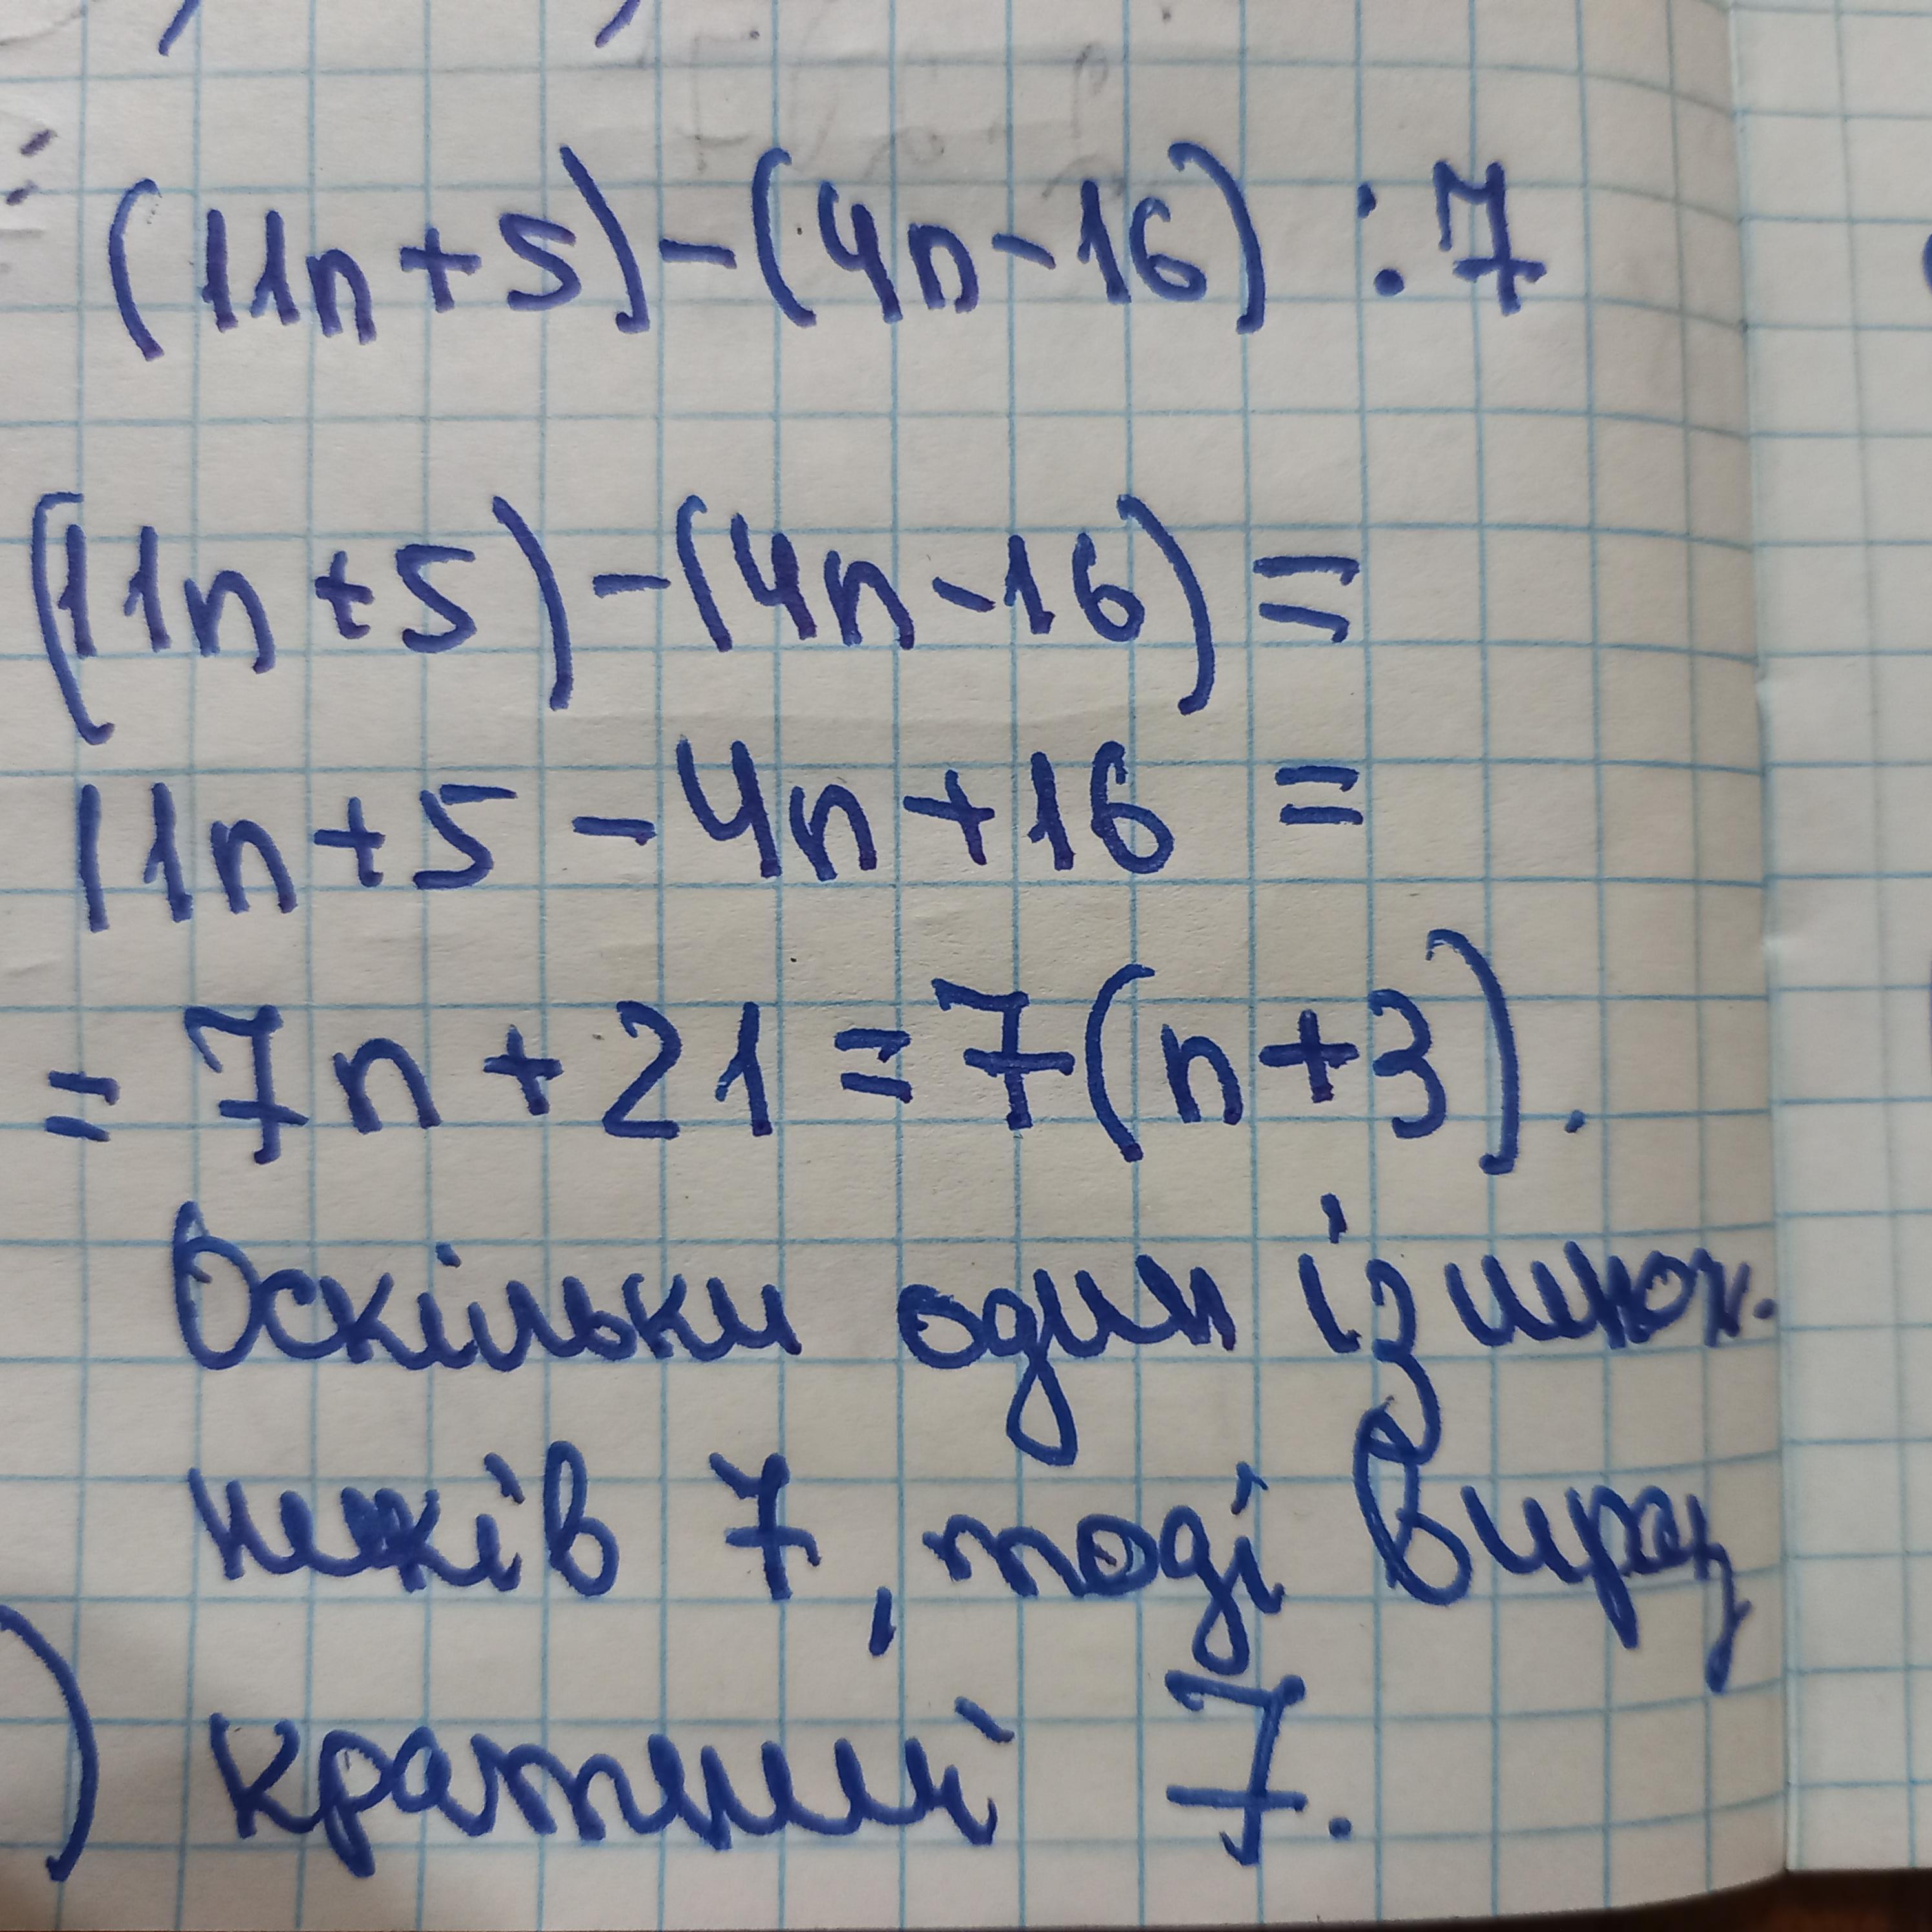 (11n+5)-(4n-16) : 7
(11n+5)-(4n-16)=
11n+5-4n+16=
=7n+21=7(n+3).
Оскільки один із множ.
ників 7, тоді вираз
) кратний 7.